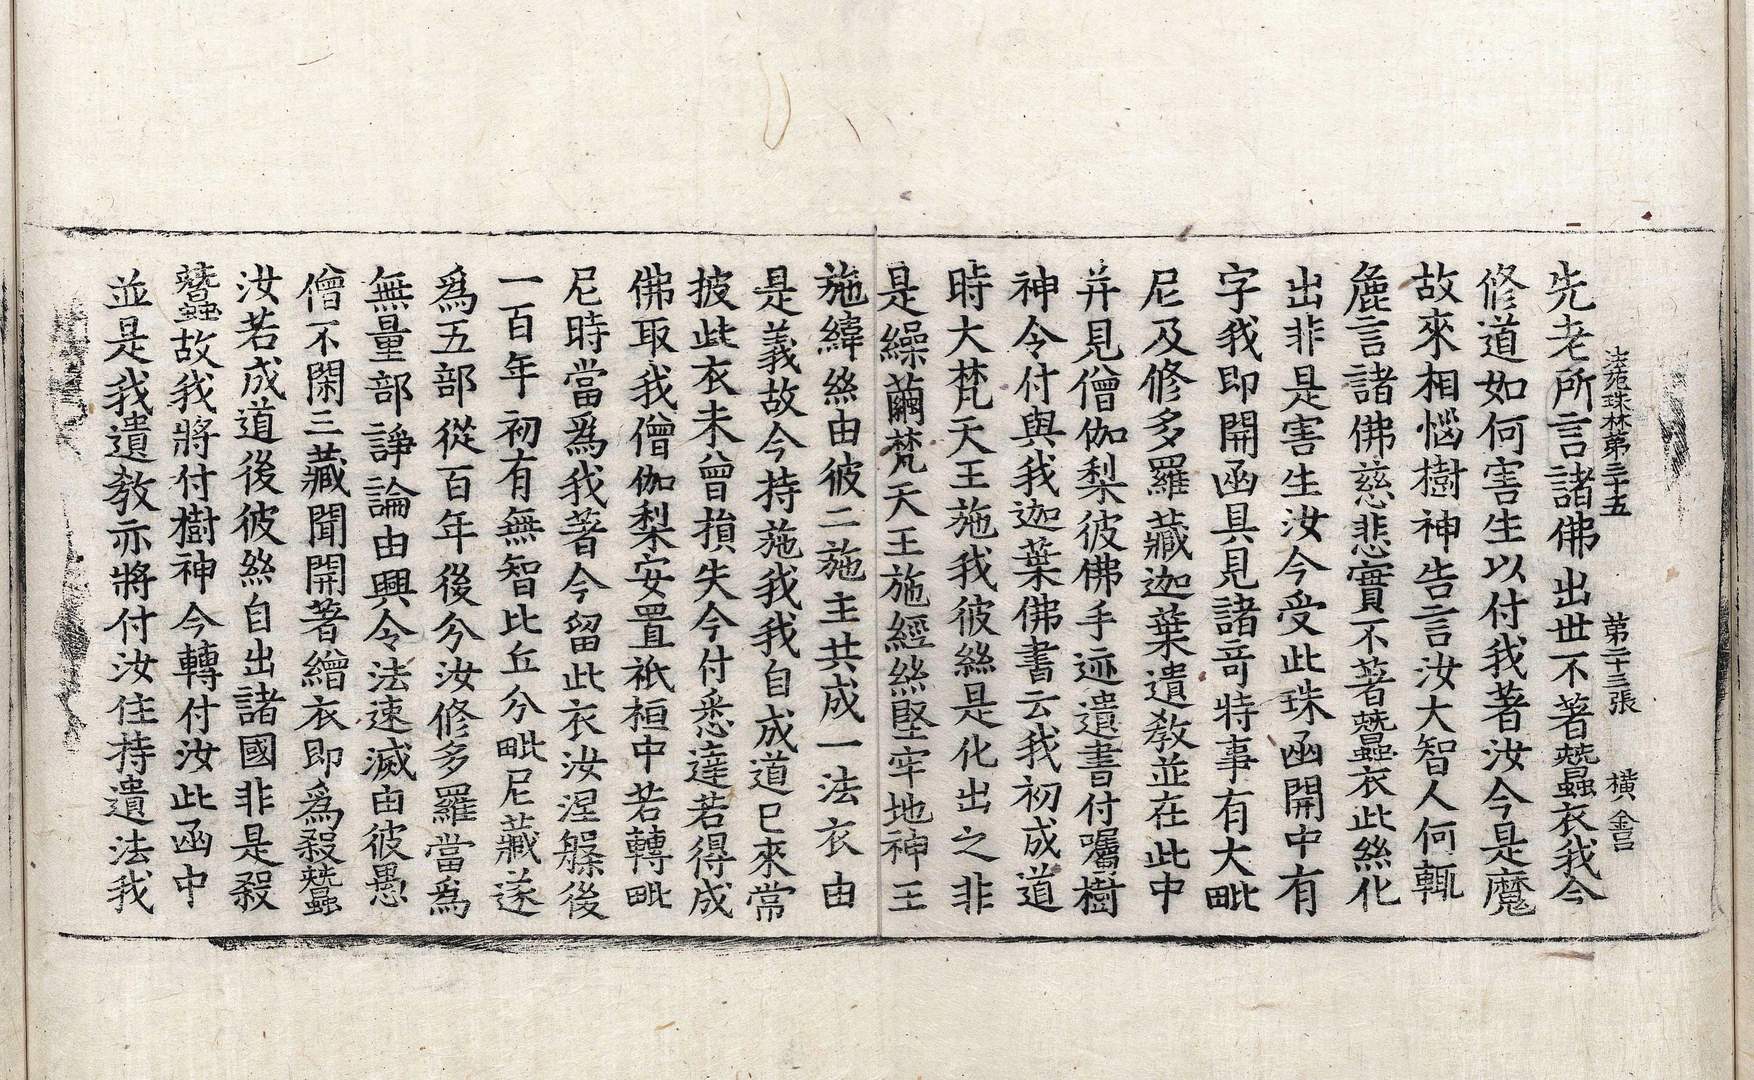 法苑珠林第三十五 第二十三張 橫 金言
先老所言諸佛出世不著蠶衣我今
修道如何害生以付我著汝今是魔
故來相惱樹神告言汝大智人何輒
麁言諸佛慈悲實不著蠶衣此絲化
出非是害生汝今受此珠函開中有
字我即開函具見諸哥特事有大毗
尼及修多羅藏迦葉遺教並在此中
并見僧伽梨彼佛手迹遺書付囑樹
神令付與我迦葉佛書云我初成道
時大梵天王施我彼絲是化出之非
是繰繭梵天王施經絲堅牢地神王
施緯絲由彼二施主共成一法衣由
是義故今持施我我自成道已來常
披此衣未曾損失今付悉達若得成
佛取我僧伽梨安置祇桓中若轉毗
尼時當爲我著今留此衣汝涅槃後
一百年初有無智比丘分毗尼藏遂
爲五部從百年後分汝修多羅當爲
無量部諍論由興令法速滅由彼愚
僧不閑三藏聞開著繒衣即爲殺蠶
汝若成道後彼絲自出諸國非是殺
蠶故我將付樹神今轉付汝此函中
並是我遺教亦將付汝住持遺法我